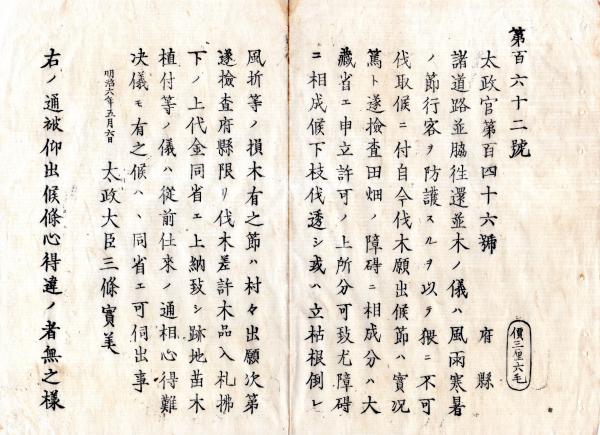 第百六十二號
價三厘六毛
太政官第百四十六號
府縣
諸道路並脇徃還並木ノ儀ハ風雨寒暑
ノ節行客ヲ防護スルヲ以テ猥ニ不可
伐取候ニ付自今伐木願出候節ハ實况
篤ト遂檢査田畑ノ障碍ニ相成分ハ大
藏省エ申立許可ノ上所分可致尤障碍
ニ相成候下枝伐透シ或ハ立枯根倒レ
風折等ノ損木有之節ハ村々出願次第
遂檢査府縣限リ伐木差許木品入札拂
下ノ上代金同省エ上納致シ跡地苗木
植付等ノ儀ハ從前仕來ノ通相心得難
决儀モ有之候ハヽ同省エ可伺出事
明治六年五月六日 太政大臣三條實美
右ノ通被仰出候條心得違ノ者無之樣